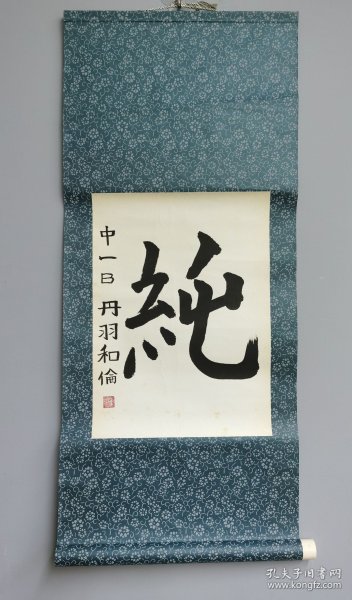 純
中一B 丹羽和倫
孔夫子旧书网
www.kongfz.com